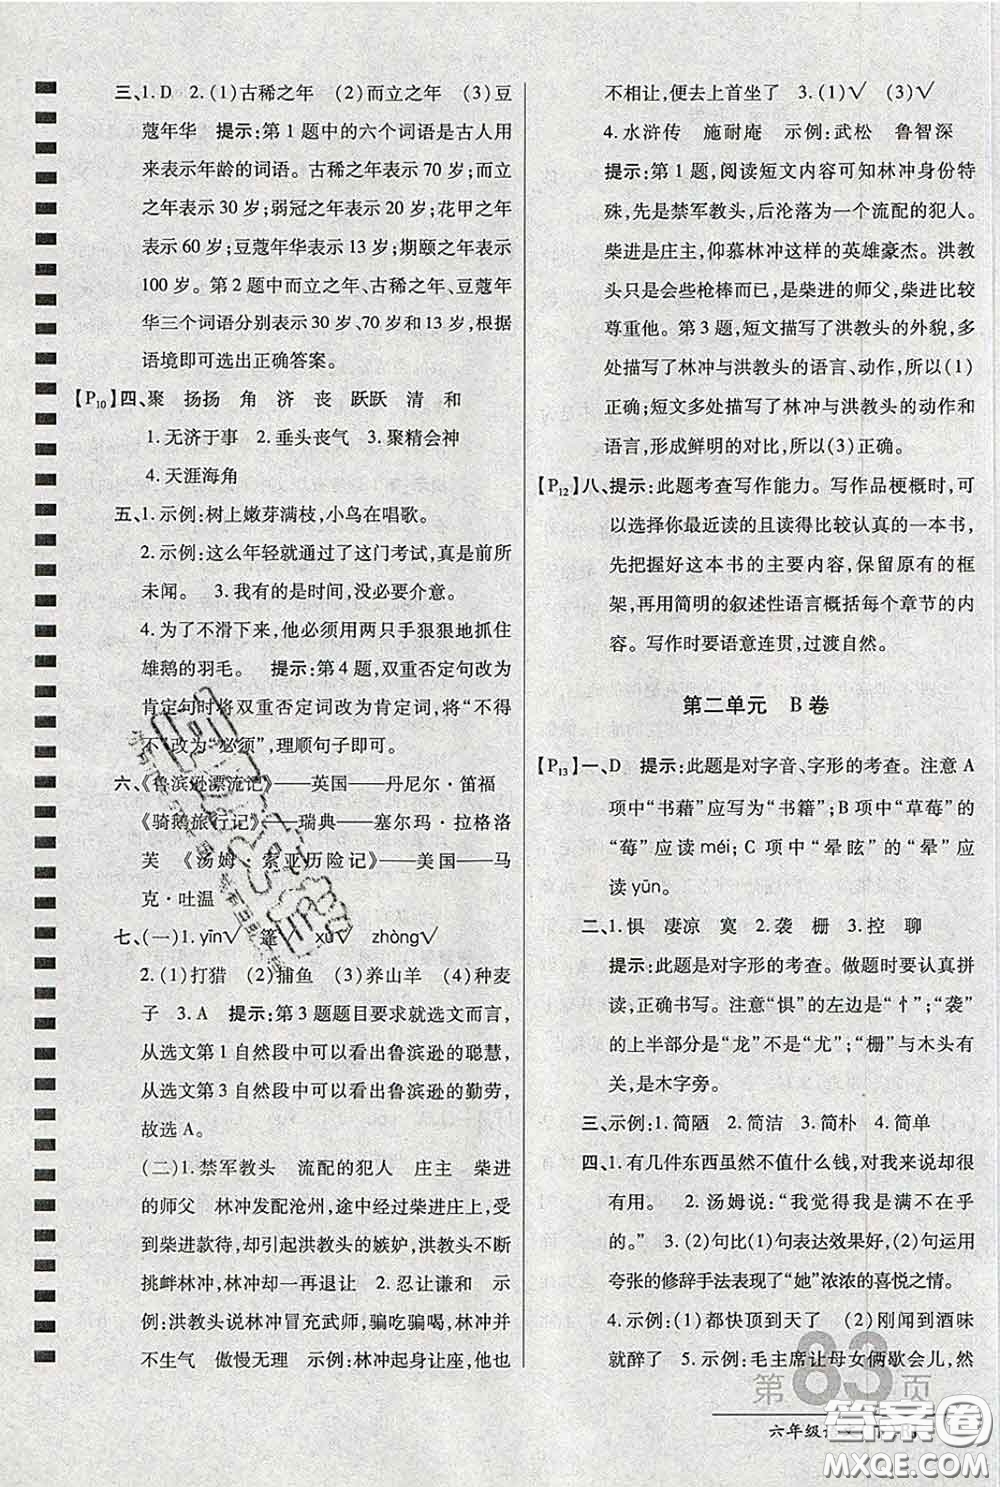 三、1.D　2.(1)古稀之年　(2)而立之年　(3)豆
蔻年华　提示:第1题中的六个词语是古人用
来表示年龄的词语。古稀之年表示70岁;而立
之年表示30岁;弱冠之年表示20岁;花甲之年
表示60岁;豆蔻年华表示13岁;期颐之年表示
100岁。第2题中而立之年、古稀之年、豆蔻年
华三个词语分别表示30岁、70岁和13岁,根据
语境即可选出正确答案。
【P10】四、聚　扬扬　角　济　丧　跃跃　清　和
1.无济于事　2.垂头丧气　3.聚精会神
4.天涯海角
五、1.示例:树上嫩芽满枝,小鸟在唱歌。
2.示例:这么年轻就通过了这门考试,真是前所
未闻。　3.我有的是时间,没必要介意。
4.为了不滑下来,他必须用两只手狠狠地抓住
雄鹅的羽毛。　提示:第4题,双重否定句改为
肯定句时将双重否定词改为肯定词,将“不得
不”改为“必须”,理顺句子即可。
六、《鲁滨逊漂流记》——英国——丹尼尔·笛福
《骑鹅旅行记》——瑞典——塞尔玛·拉格洛
芙　《汤姆·索亚历险记》——美国——马
克·吐温
七、(一)1.yīn√　篷　xù√　zhòng√
2.(1)打猎　(2)捕鱼　(3)养山羊　(4)种麦
子　3.A　提示:第3题题目要求就选文而言,
从选文第1自然段中可以看出鲁滨逊的聪慧,
从选文第3自然段中可以看出鲁滨逊的勤劳,
故选A。
(二)1.禁军教头　流配的犯人　庄主　柴进
的师父　林冲发配沧州,途中经过柴进庄上,受
到柴进款待,却引起洪教头的嫉妒,洪教头不断
挑衅林冲,林冲却一再退让　2.忍让谦和　示
例:洪教头说林冲冒充武师,骗吃骗喝,林冲并
不生气　傲慢无理　示例:林冲起身让座,他也
不相让,便去上首坐了　3.(1)√　(3)√
4.水浒传　施耐庵　示例:武松　鲁智深
提示:第1题,阅读短文内容可知林冲身份特
殊,先是禁军教头,后沦落为一个流配的犯人。
柴进是庄主,仰慕林冲这样的英雄豪杰。洪教
头只是会些枪棒而已,是柴进的师父,柴进比较
尊重他。第3题,短文描写了洪教头的外貌,多
处描写了林冲与洪教头的语言、动作,所以(1)
正确;短文多处描写了林冲与洪教头的动作和
语言,形成鲜明的对比,所以(3)正确。
【P12】八、提示:此题考查写作能力。写作品梗概时,可
以选择你最近读的且读得比较认真的一本书,
先把握好这本书的主要内容,保留原有的框
架,再用简明的叙述性语言概括每个章节的内
容。写作时要语意连贯,过渡自然。
第二单元　B卷
【P13】一、D　提示:此题是对字音、字形的考查。注意A
项中“书藉”应写为“书籍”;B项中“草莓”的
“莓”应读méi;C项中“晕眩”的“晕”应
读yūn。
二、1.惧　凄凉　寞　2.袭　栅　3.控　聊
提示:此题是对字形的考查。做题时要认真拼
读,正确书写。注意“惧”的左边是“忄”;“袭”
的上半部分是“龙”不是“尤”;“栅”与木头有
关,是木字旁。
三、示例:1.简陋　2.简洁　3.简朴　4.简单
四、1.有几件东西虽然不值什么钱,对我来说却很
有用。　2.汤姆说:“我觉得我是满不在乎
的。”　3.(2)句比(1)句表达效果好,(2)句运用
夸张的修辞手法表现了“她”浓浓的喜悦之情。
4.示例:(1)都快顶到天了　(2)刚闻到酒味
就醉了　5.示例:毛主席让母女俩歇会儿,然
第83页
六年级
答案圈
MXQE.COM